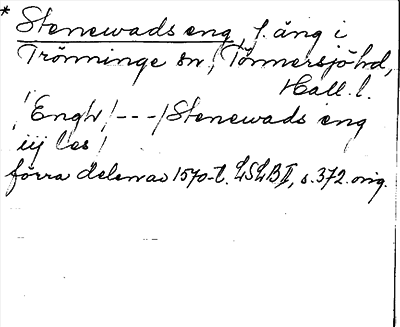 * Stenewads eng, f. äng i
Trönninge sn, Tönnersjöhd,
Hall. l.
/Engh/---/Stenewads eng
iij les/
förra delen av 1570-t. LSLB II, s. 372. orig.